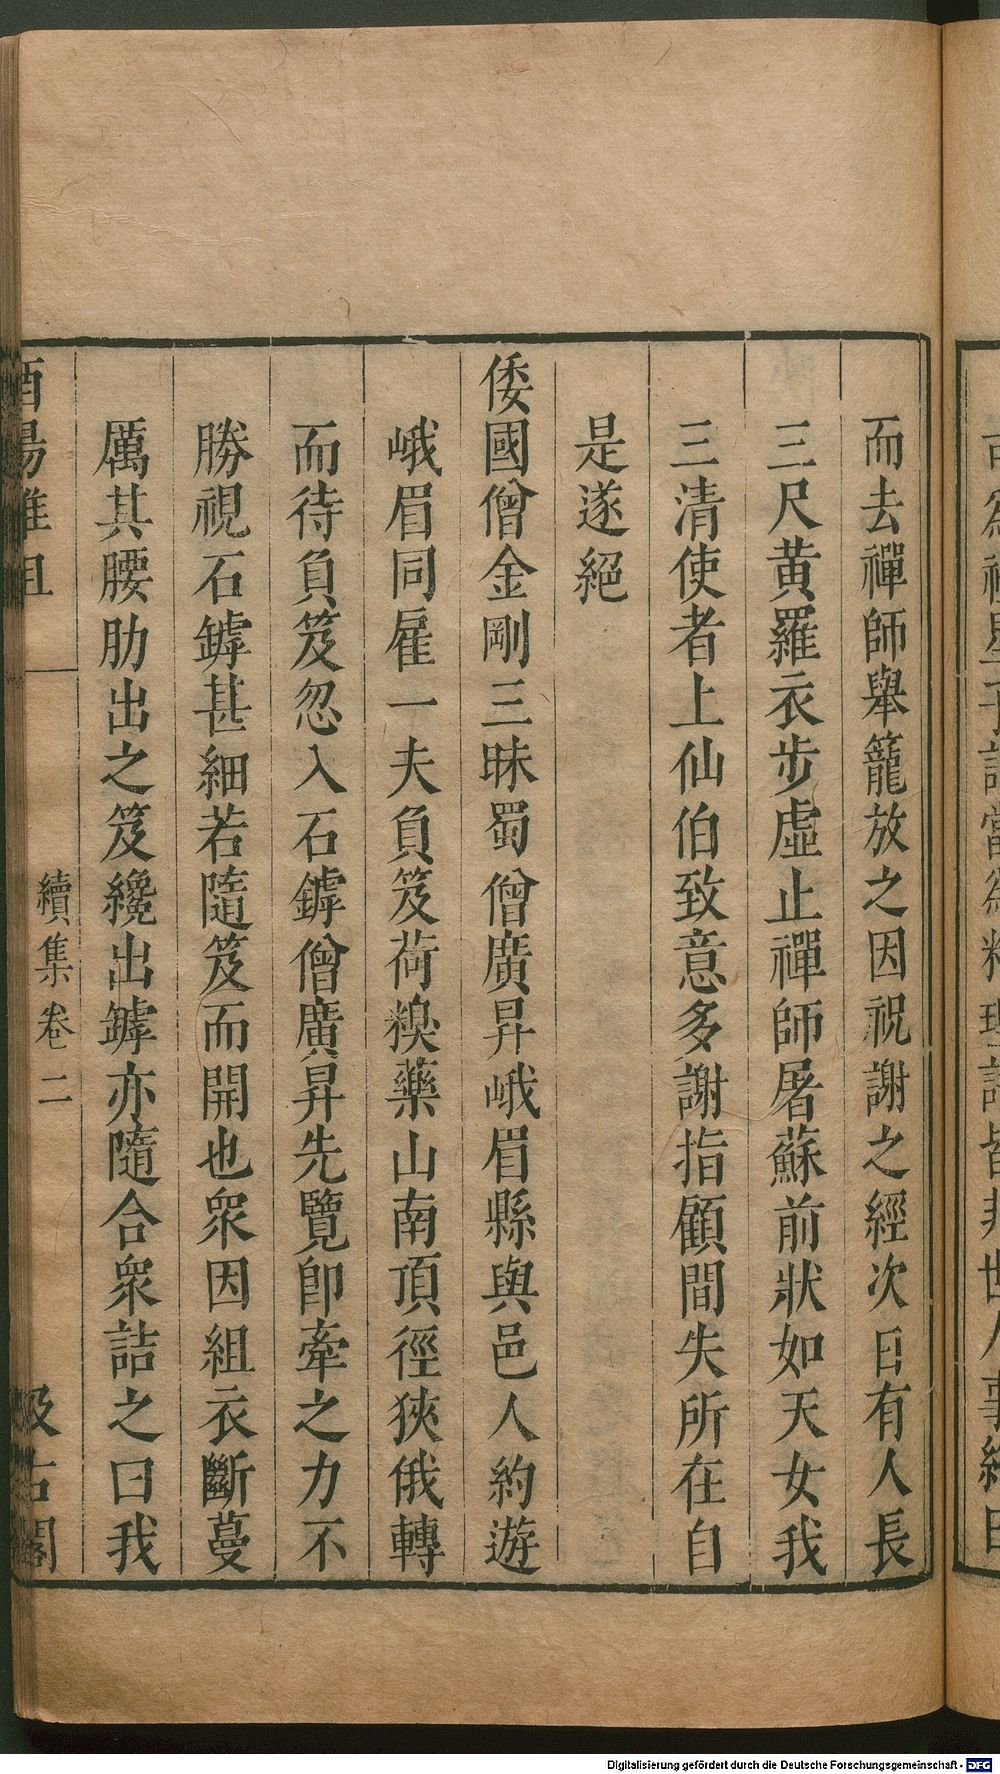 而去禪師舉籠放之因祝謝之經次日有人長
三尺黄羅衣步虛止禪師屠蘇前狀如天女我
三清使者上仙伯致意多謝指顧間失所在自
是遂絕
倭國僧金剛三昧蜀僧廣昇峨眉縣與邑人約遊
峨眉同雇一夫負笈荷糗藥山南頂徑狹俄轉
而待負笈忽入石罅僧廣昇先覽卽牽之力不
勝視石罅甚細若隨笈而開也衆因組衣斷蔓
厲其腰肋出之笈纔出罅亦隨合衆詰之曰我
酉陽雜俎
續集卷二
汲古閣
Digitalisierung gefördert durch die Deutsche Forschungsgemeinschaft - DFG